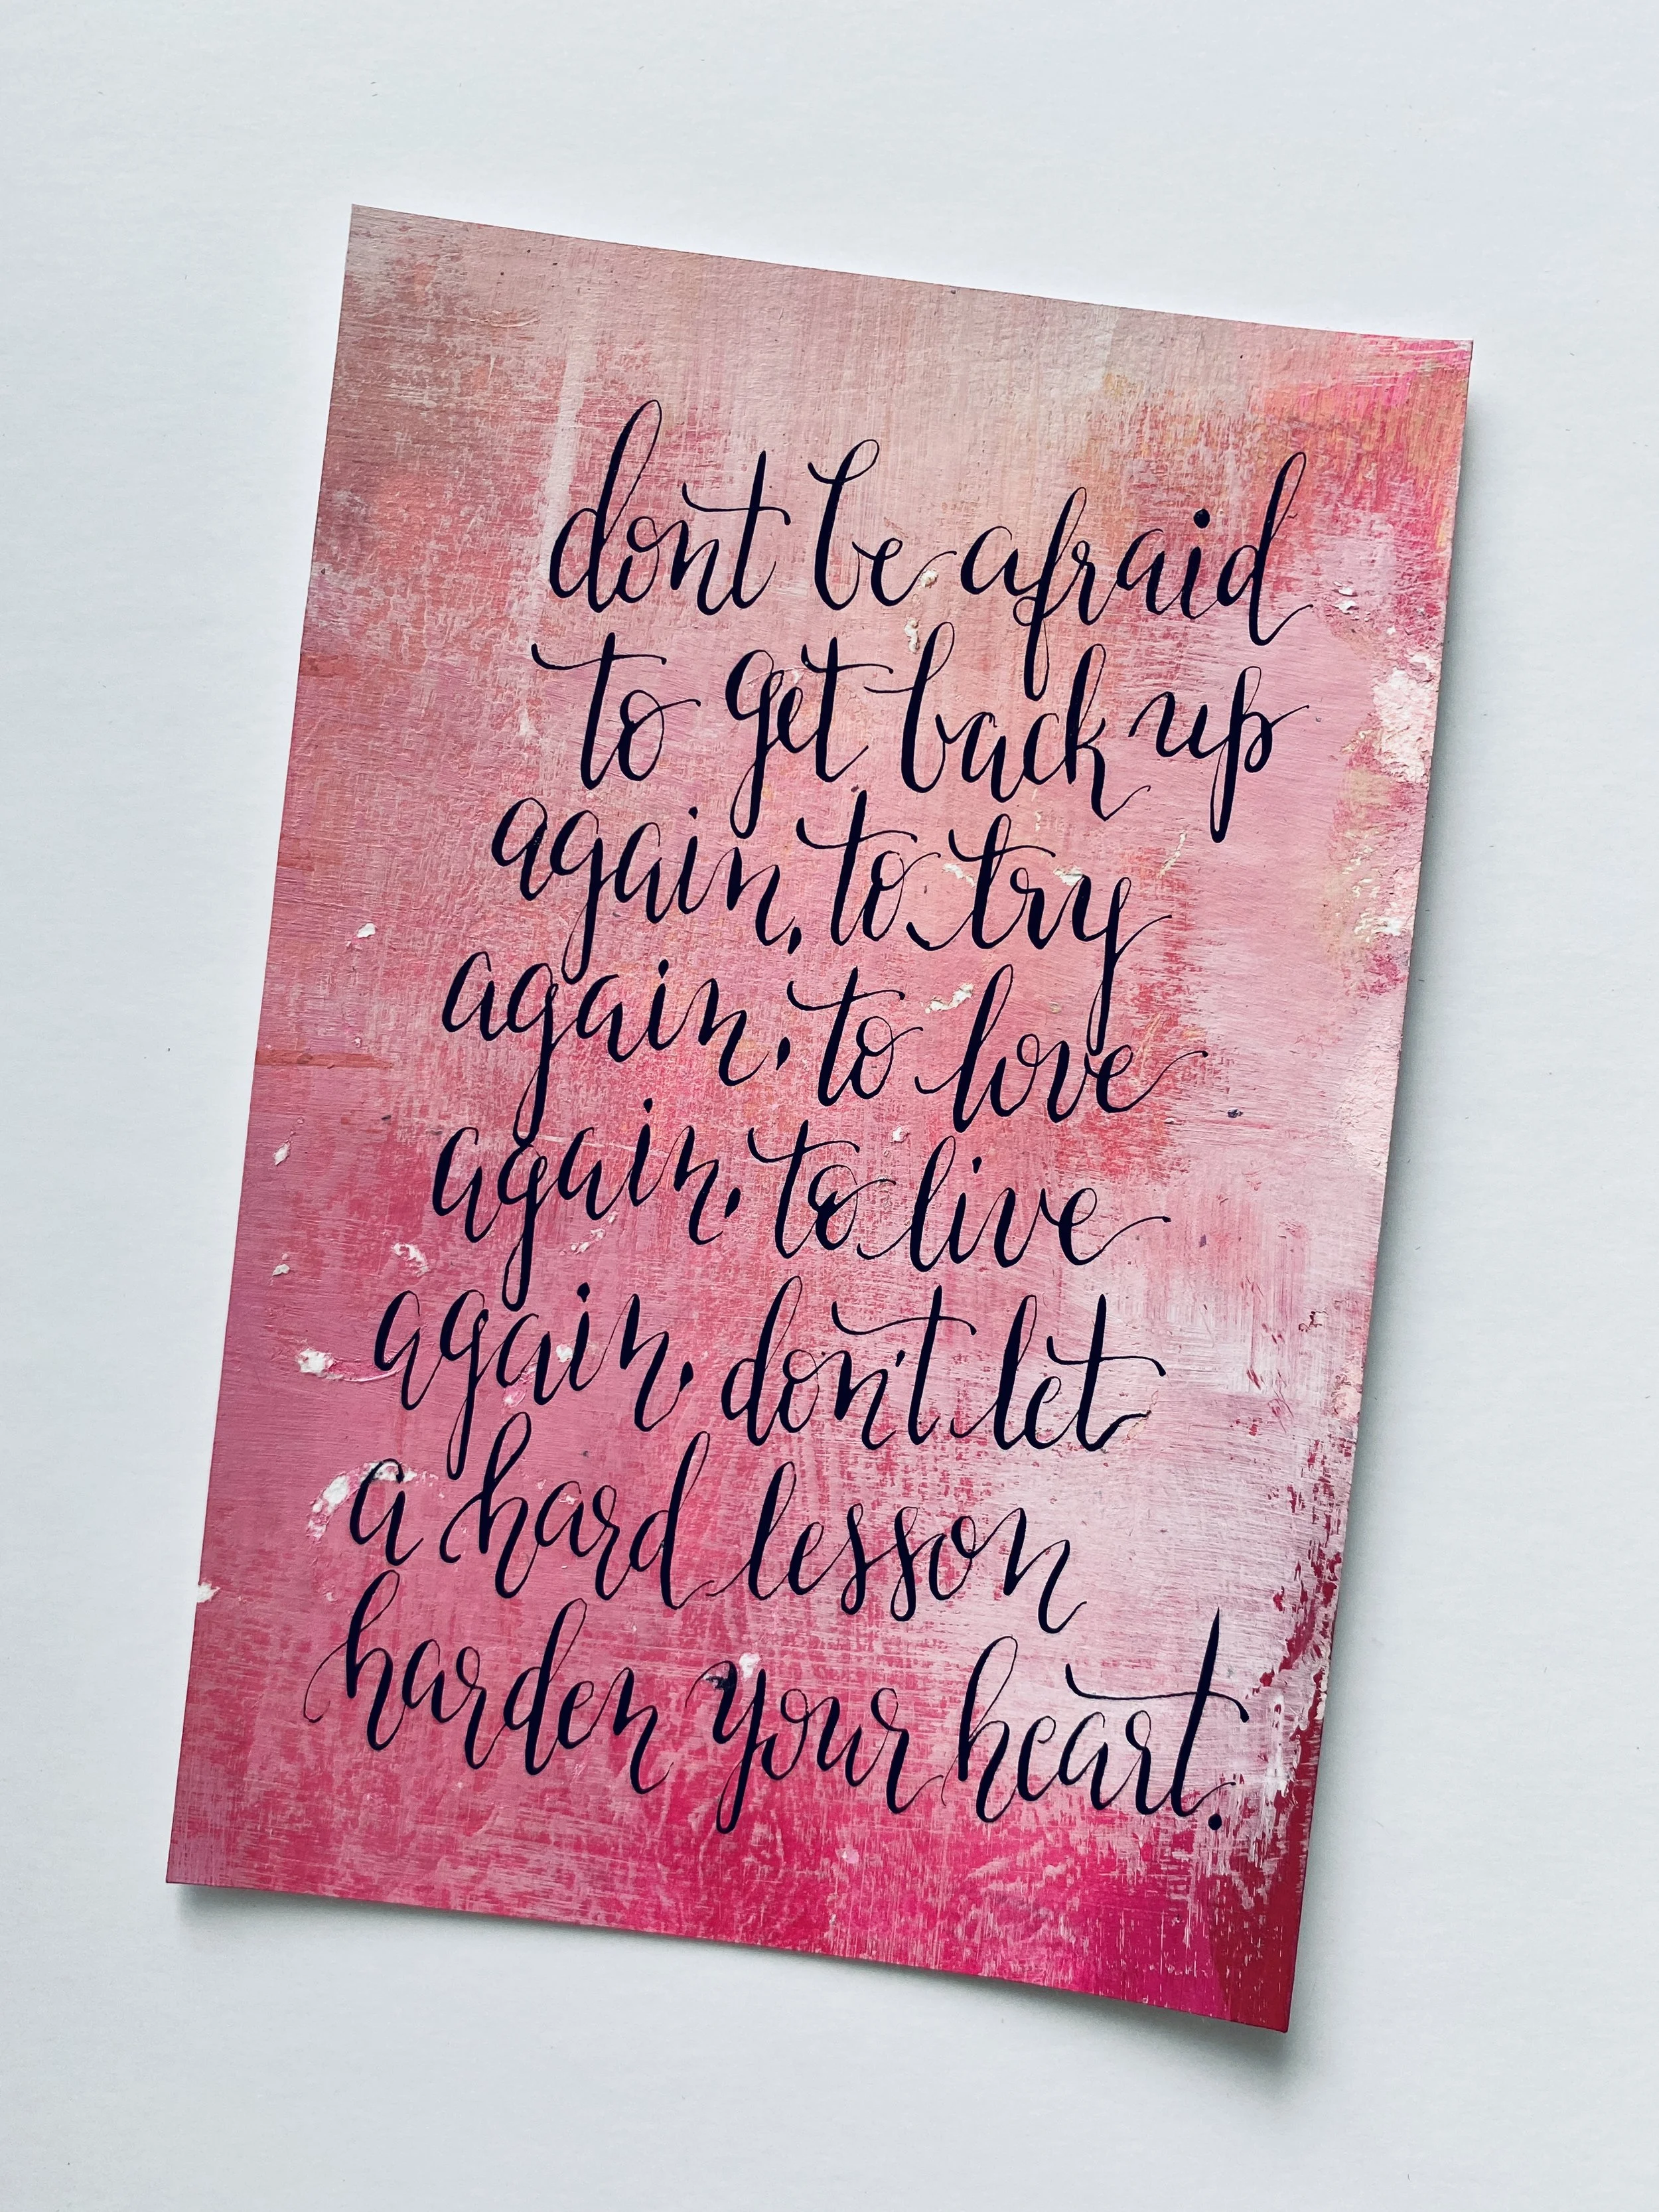 dont be afraid
to get back up
again, to try
again, to love
again, to live
again, don't let
a hard lesson
harden your heart.